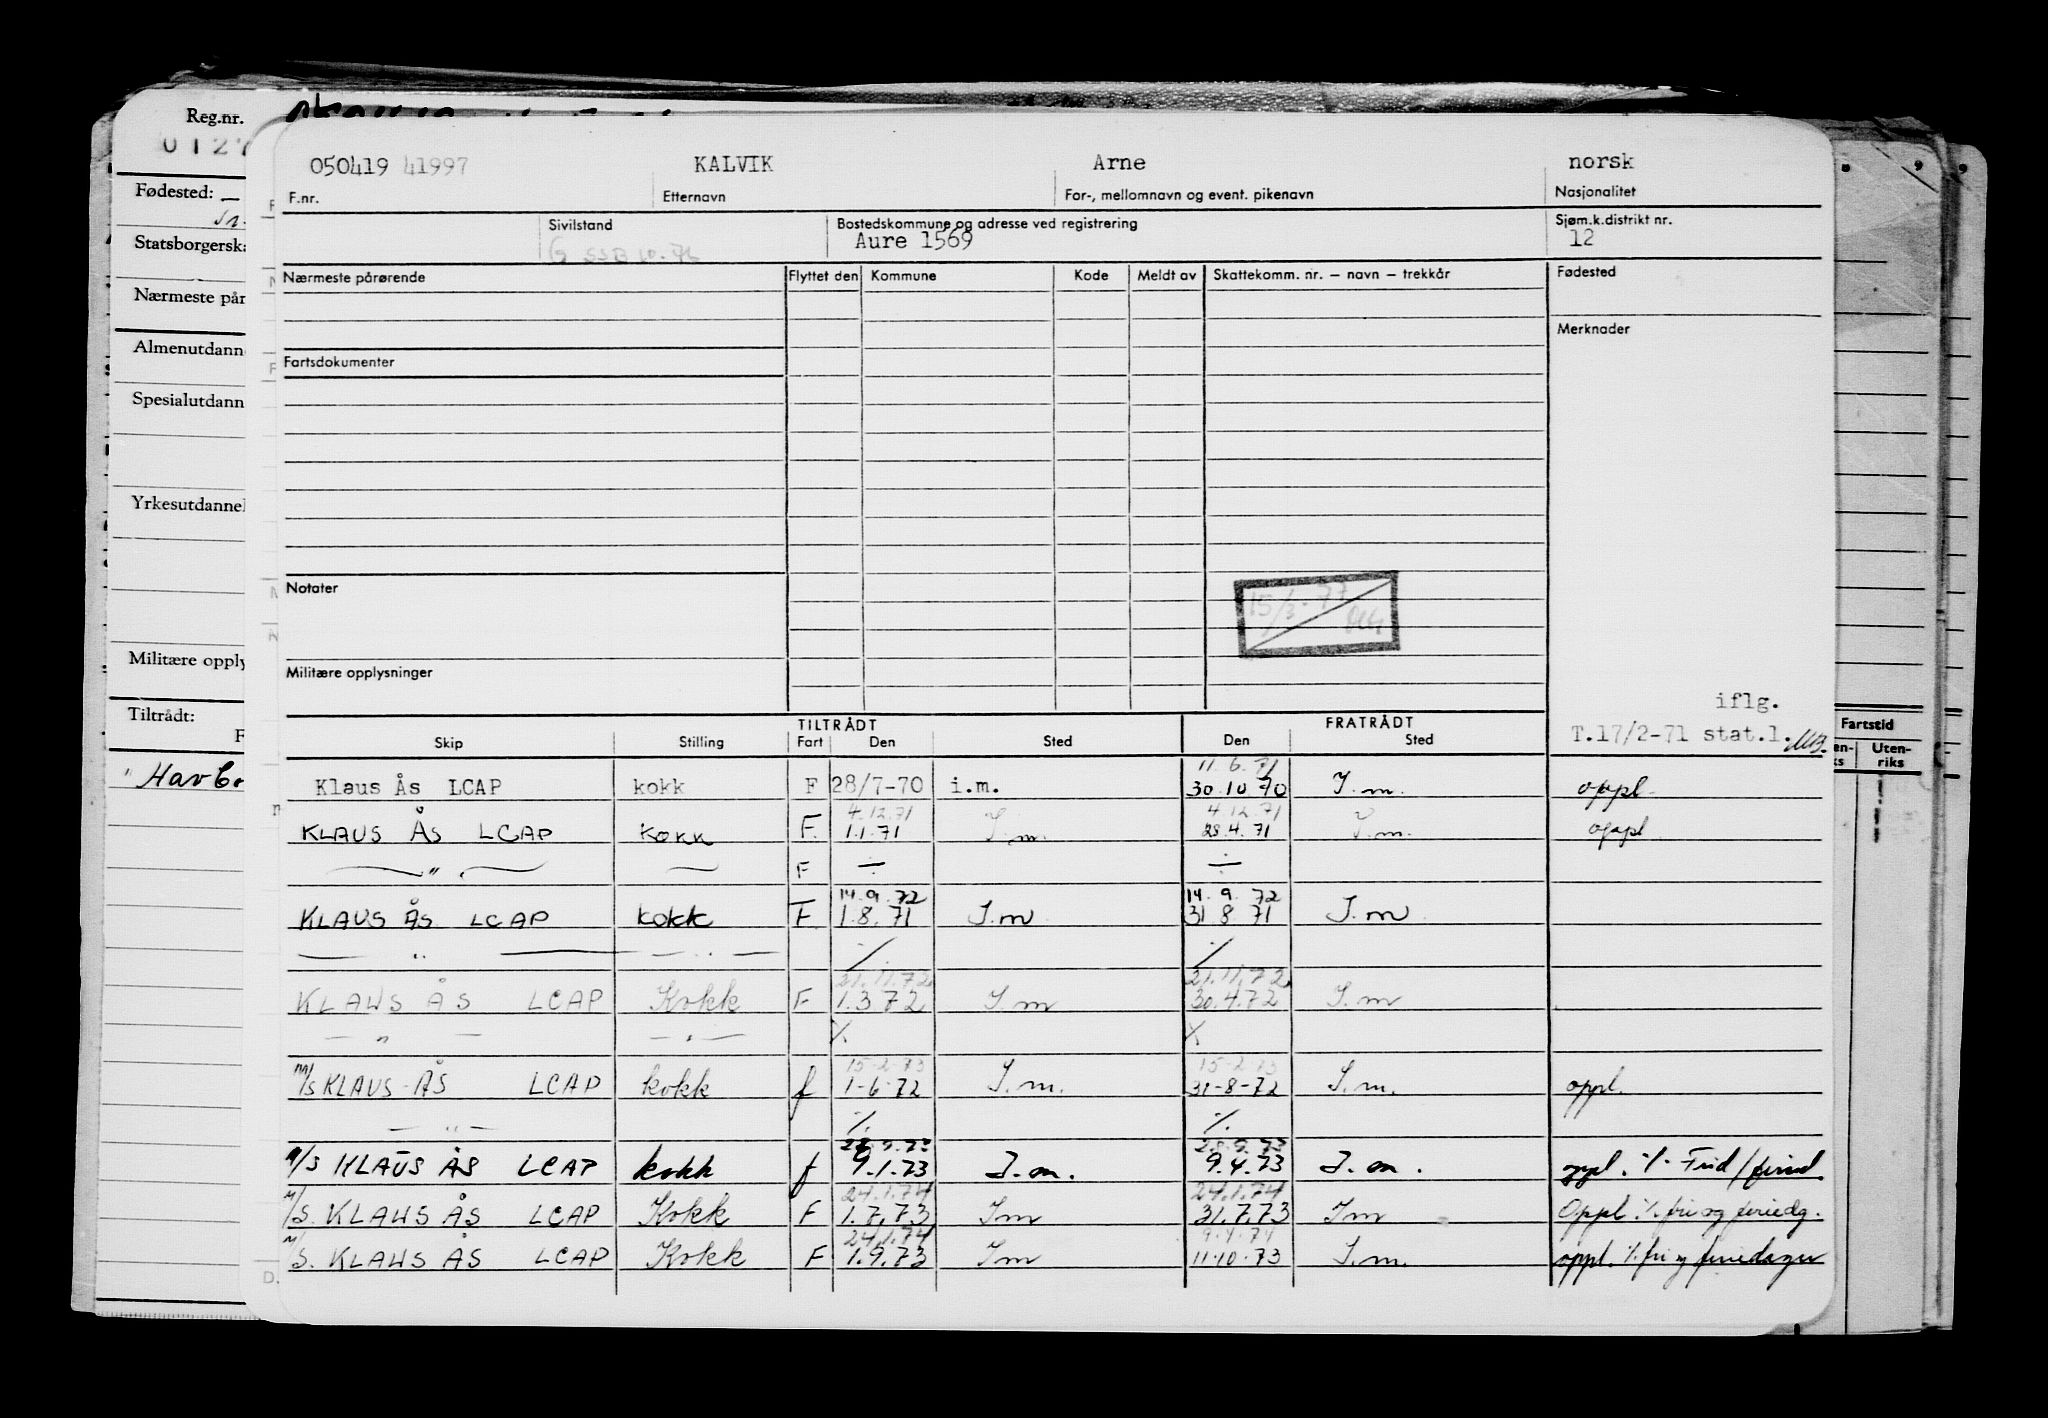 Reg.nr.
Fødested:
Statsborgerska
Nærmeste pår
Almenutdann
Spesialutdann
Yrkesutdannel
Militære opply
Tiltrådt:
F
050419 41997 KALVIK Arne norsk
F.nr. Etternavn For-, mellomnavn og event. pikenavn Nasjonalitet
Sivilstand Bostedskommune og adresse ved registrering Sjøm.k.distrikt nr.
G SSB 10.76 Aure 1569 12
Nærmeste pårørende Flyttet den Kommune Kode Meldt av Skattekomm. nr. – navn – trekkår Fødested
Merknader
Fartsdokumenter
Notater
15/3-77
Militære opplysninger
iflg.
T.17/2-71 stat.l.
TILTRÅDT FRATRÅDT Fartstid
Skip Stilling Fart Den Sted Den Sted
Uten-
riks
11.6.71
Klaus Ås LCAP kokk F 28/7-70 i.m. 30.10.70 I.m. oppl.
4.12.71 4.12.71
KLAUS ÅS LCAP Kokk F. 1.1.71 I.m. 28.4.71 I.m. oppl
— " — — F ÷ ÷
14.9.72 14.9.72
KLAUS ÅS LCAP kokk F. 1.8.71 I.m 31.8.71 I.m
— " — — " — ·/. ·/.
21.11.72 21.11.72
KLAUS ÅS LCAP Kokk F 1.3.72 I.m 30.4.72 I.m
— " — — " — X X
15-2-73 15-2-73
M/S KLAUS-ÅS LCAP kokk f 1-6-72 I.m. 31-8-72 I.m. oppl.
— " — ·/. ·/.
28.9.73 28.9.73
M/S KLAUS ÅS LCAP kokk f 9.1.73 I.m. 9.4.73 I.m. oppl. ·/. Frid/feried.
24.1.74 24.1.74
M/S. KLAUS ÅS LCAP Kokk F 1.7.73 Im 31.7.73 Im Oppl ·/. fri og feriedg.
24.1.74 9.4.74
M/S. KLAUS ÅS LCAP Kokk F 1.9.73 Im 11.10.73 I.m. oppl. ·/. fri og feriedager